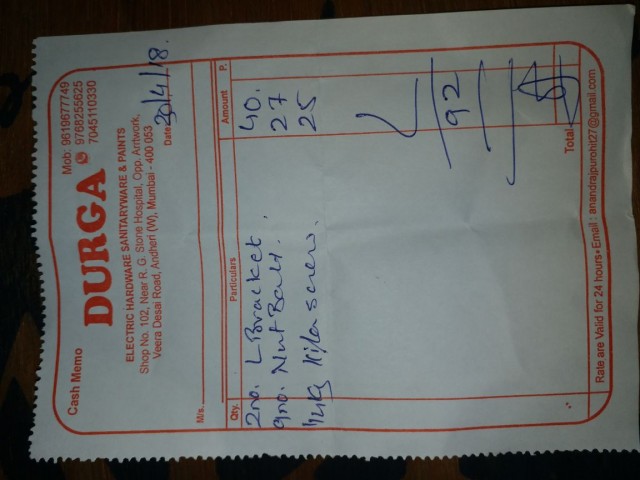 Cash Memo
Mob: 9619677749
9768255625
7045110330
DURGA
ELECTRIC HARDWARE SANITARYWARE & PAINTS
Shop No. 102, Near R. G. Stone Hospital, Opp. Amtwork,
Veera Desai Road, Andheri (W), Mumbai - 400 053
Date 30/4/18.
M/s.
Qty. Particulars Amount P.
2no. L Bracket. 40.
9no. Nut Bolt. 27
screw. 25
92
Total
Rate are Valid for 24 hours • Email : anandrajpurohit27@gmail.com